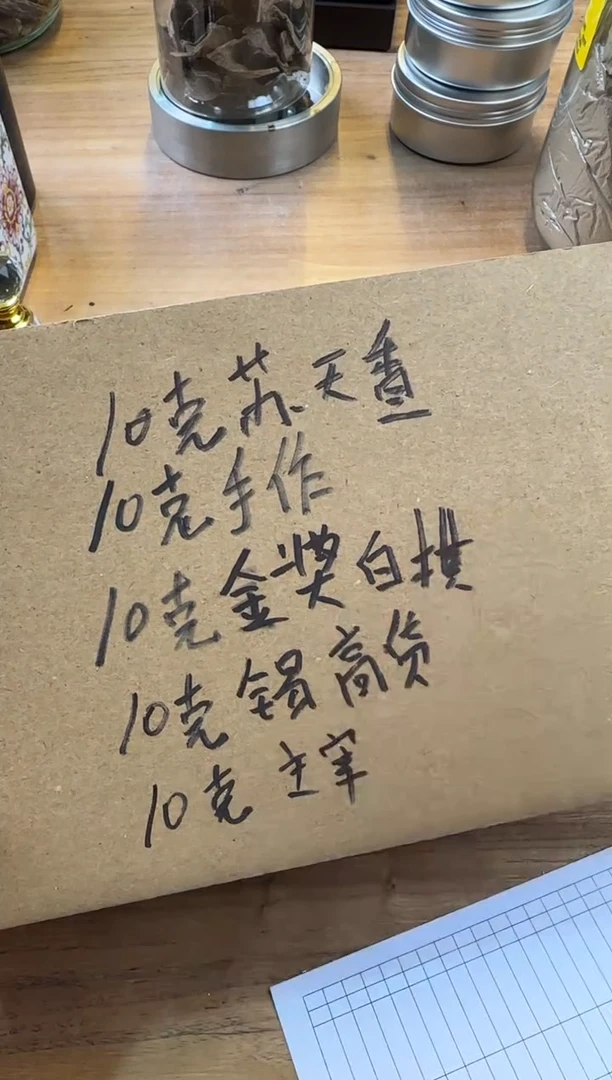 10克苏天香
10克手作
10克金奖白拱
10克锡高货
10克主宰